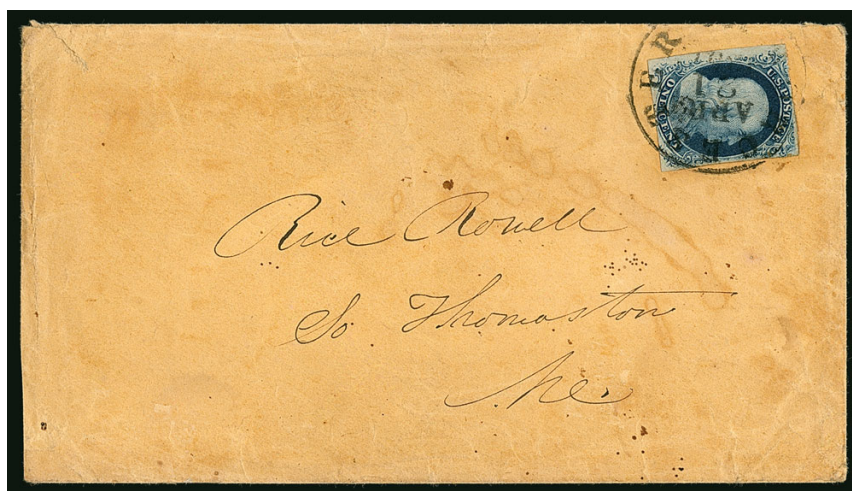 U.S. POSTAGE
ONE CENT
APR
21
Rice Rowell
So. Thomaston
Me.